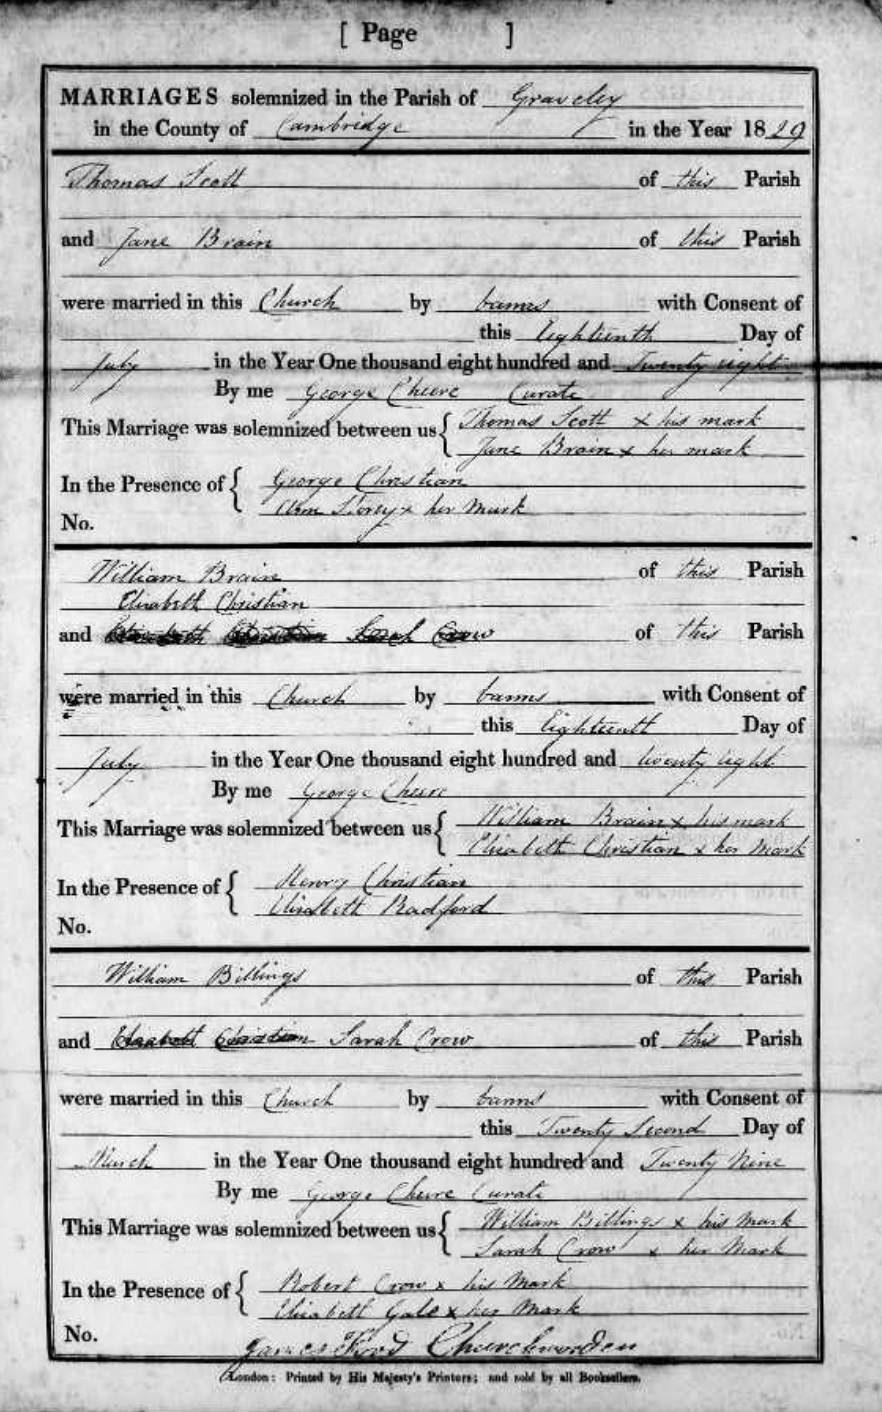 [ Page ]
MARRIAGES solemnized in the Parish of Graveley
in the County of Cambridge in the Year 1829
Thomas Scott of this Parish
and Jane Brain of this Parish
were married in this Church by banns with Consent of
this Eighteenth Day of
July in the Year One thousand eight hundred and Twenty eight
By me George Cheere Curate
This Marriage was solemnized between us { Thomas Scott x his mark
Jane Brain x her mark
In the Presence of { George Christian
Ann Storey x her Mark
No.
William Brain of this Parish
Elizabeth Christian
and Elizabeth Christian Sarah Crow of this Parish
were married in this Church by banns with Consent of
this Eighteenth Day of
July in the Year One thousand eight hundred and twenty eight
By me George Cheere
This Marriage was solemnized between us { William Brain x his mark
Elizabeth Christian x her Mark
In the Presence of { Henry Christian
Elizabeth Radford
No.
William Billings of this Parish
and Elizabeth Christian Sarah Crow of this Parish
were married in this Church by banns with Consent of
this Twenty Second Day of
March in the Year One thousand eight hundred and Twenty Nine
By me George Cheere Curate
This Marriage was solemnized between us { William Billings x his Mark
Sarah Crow x her Mark
In the Presence of { Robert Crow x his Mark
Elizabeth Gale x her Mark
No. James Ford Churchwarden
London: Printed by His Majesty's Printers; and sold by all Booksellers.